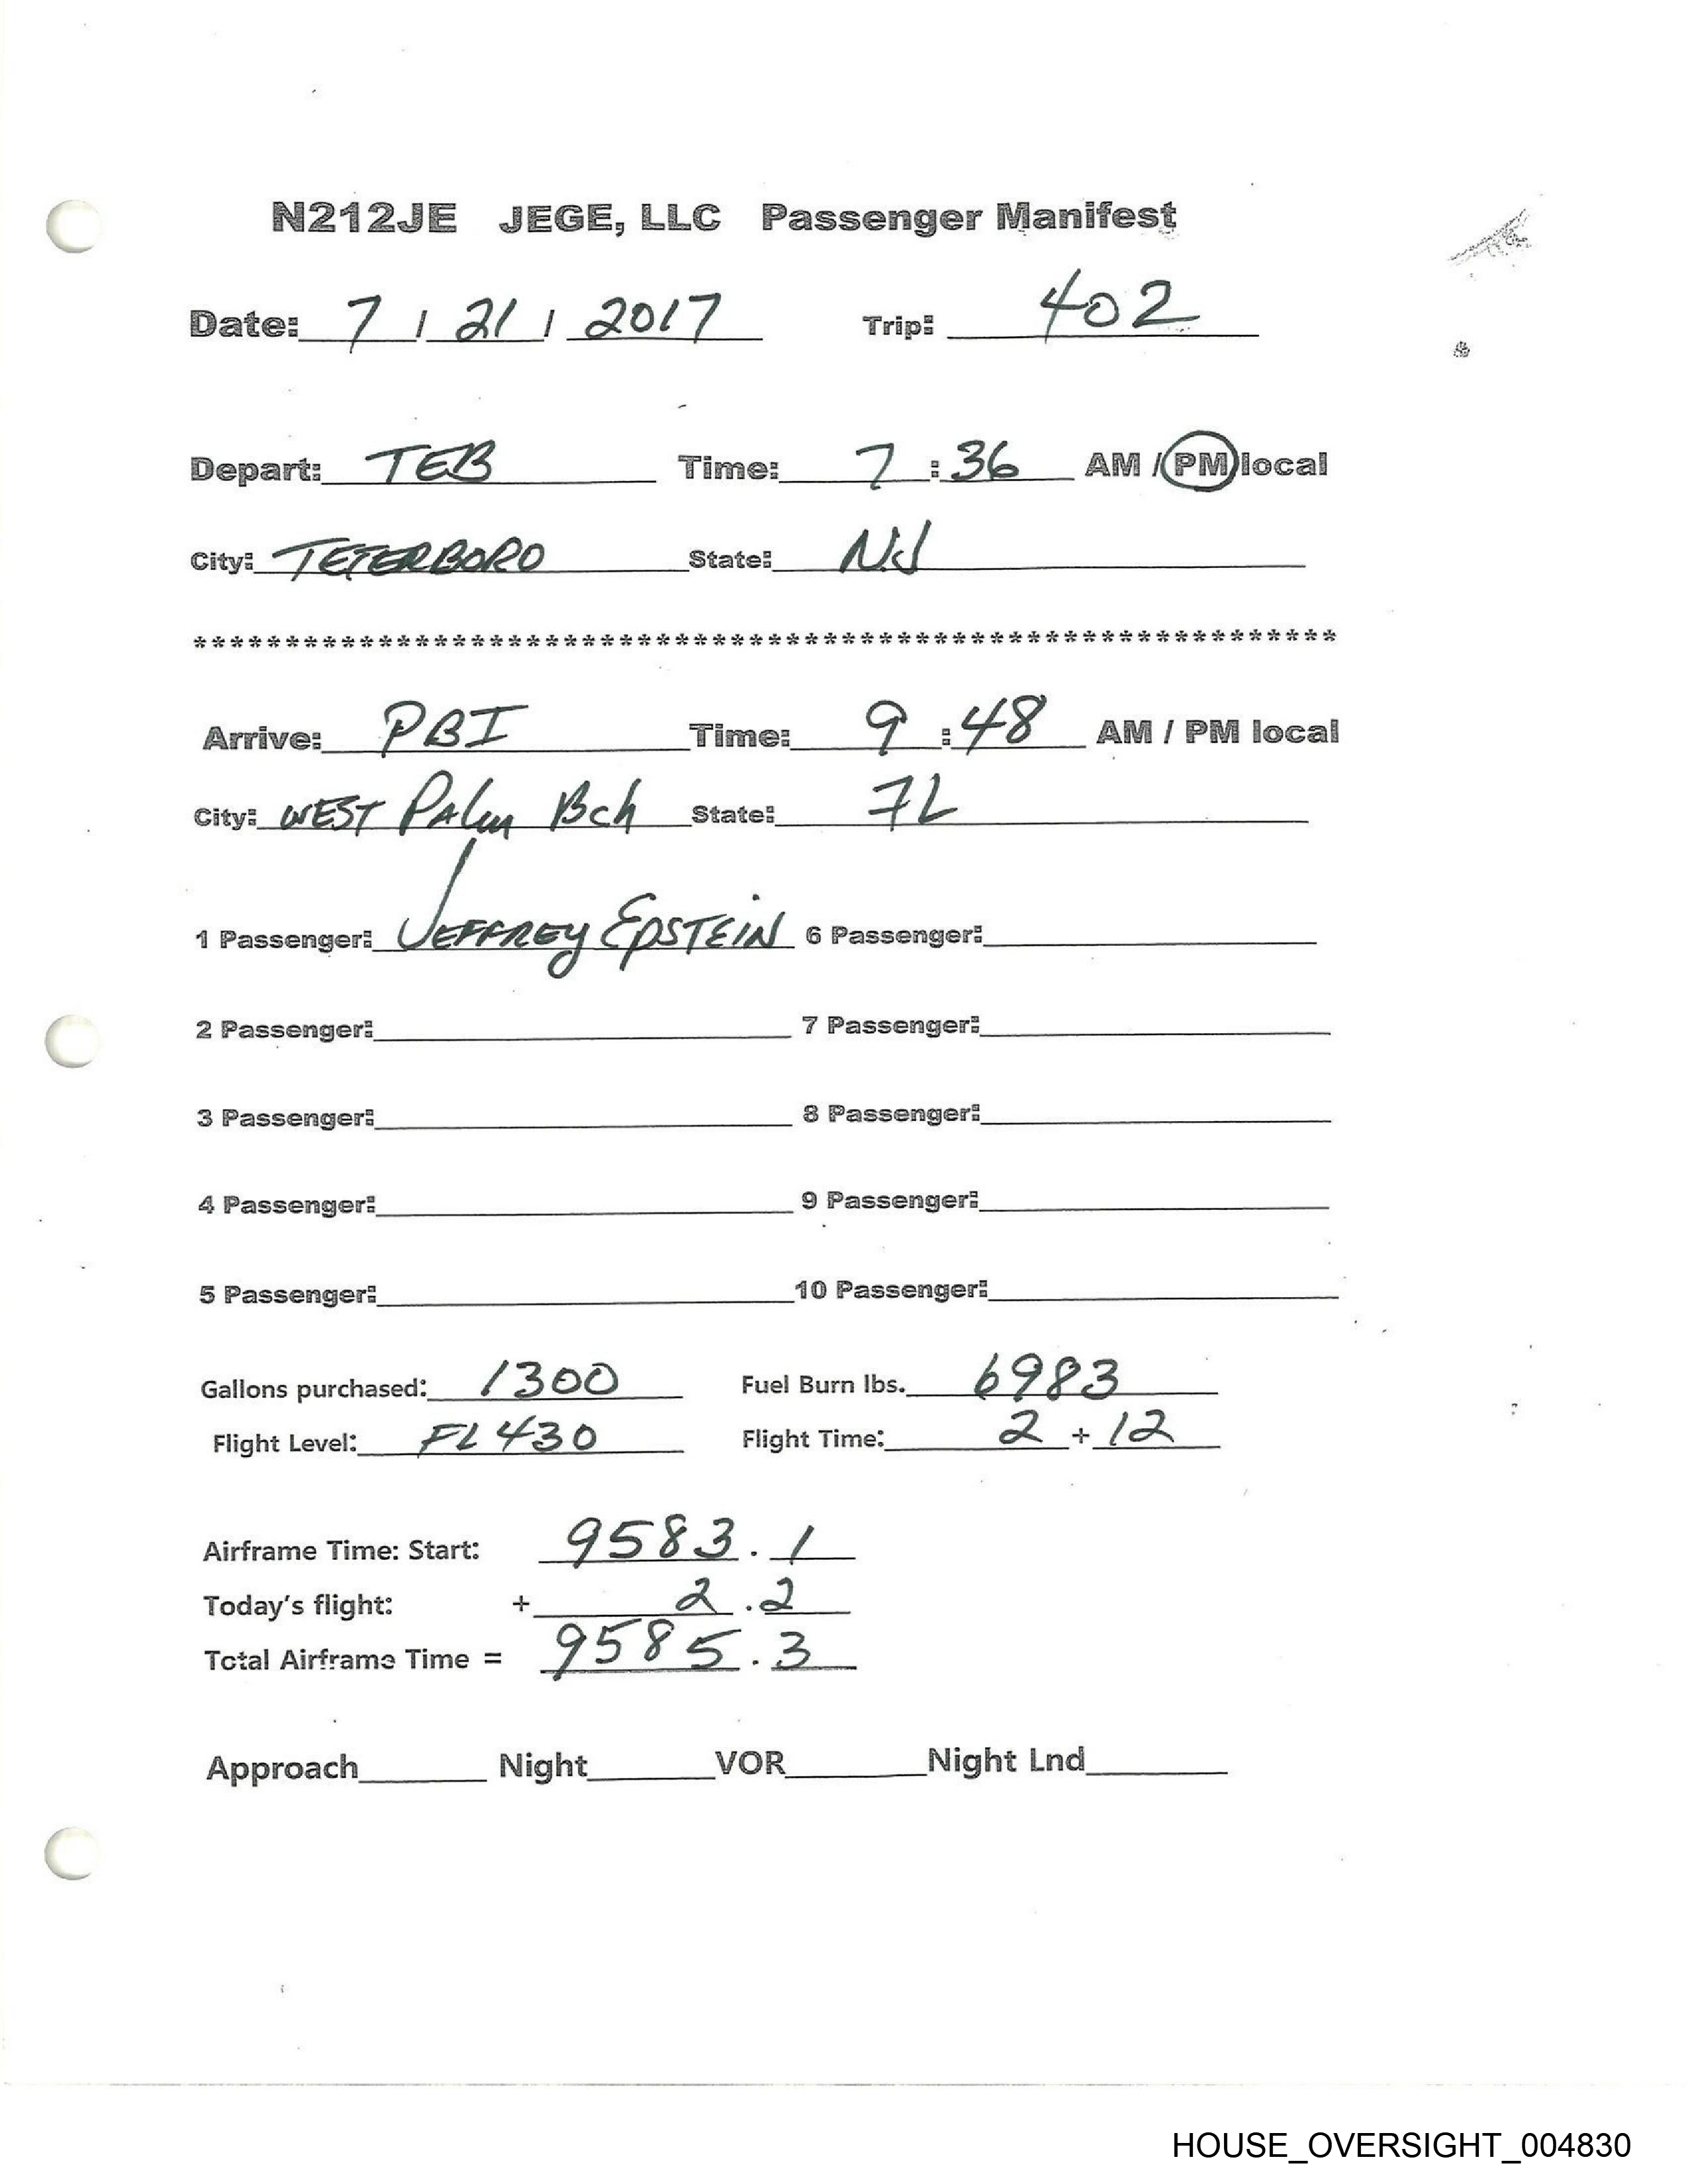 N212JE JEGE, LLC Passenger Manifest
Date: 7 / 21 / 2017 Trip: 402
Depart: TEB Time: 7 : 36 AM / PM local
City: TETERBORO State: NJ
************************************************************
Arrive: PBI Time: 9 : 48 AM / PM local
City: WEST PAlm Bch State: FL
1 Passenger: JEFFREY EPSTEIN 6 Passenger:
2 Passenger: 7 Passenger:
3 Passenger: 8 Passenger:
4 Passenger: 9 Passenger:
5 Passenger: 10 Passenger:
Gallons purchased: 1300 Fuel Burn lbs. 6983
Flight Level: FL430 Flight Time: 2 + 12
Airframe Time: Start: 9583 . 1
Today's flight: + 2 . 2
Total Airframe Time = 9585 . 3
Approach Night VOR Night Lnd
HOUSE_OVERSIGHT_004830